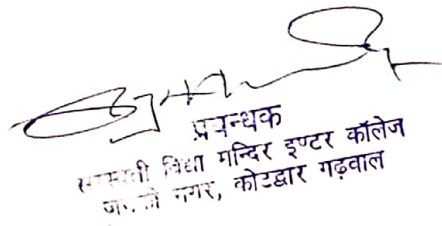 प्रबन्धक
सरस्वती विद्या मन्दिर इण्टर कॉलेज
नगर, कोटद्वार गढ़वाल